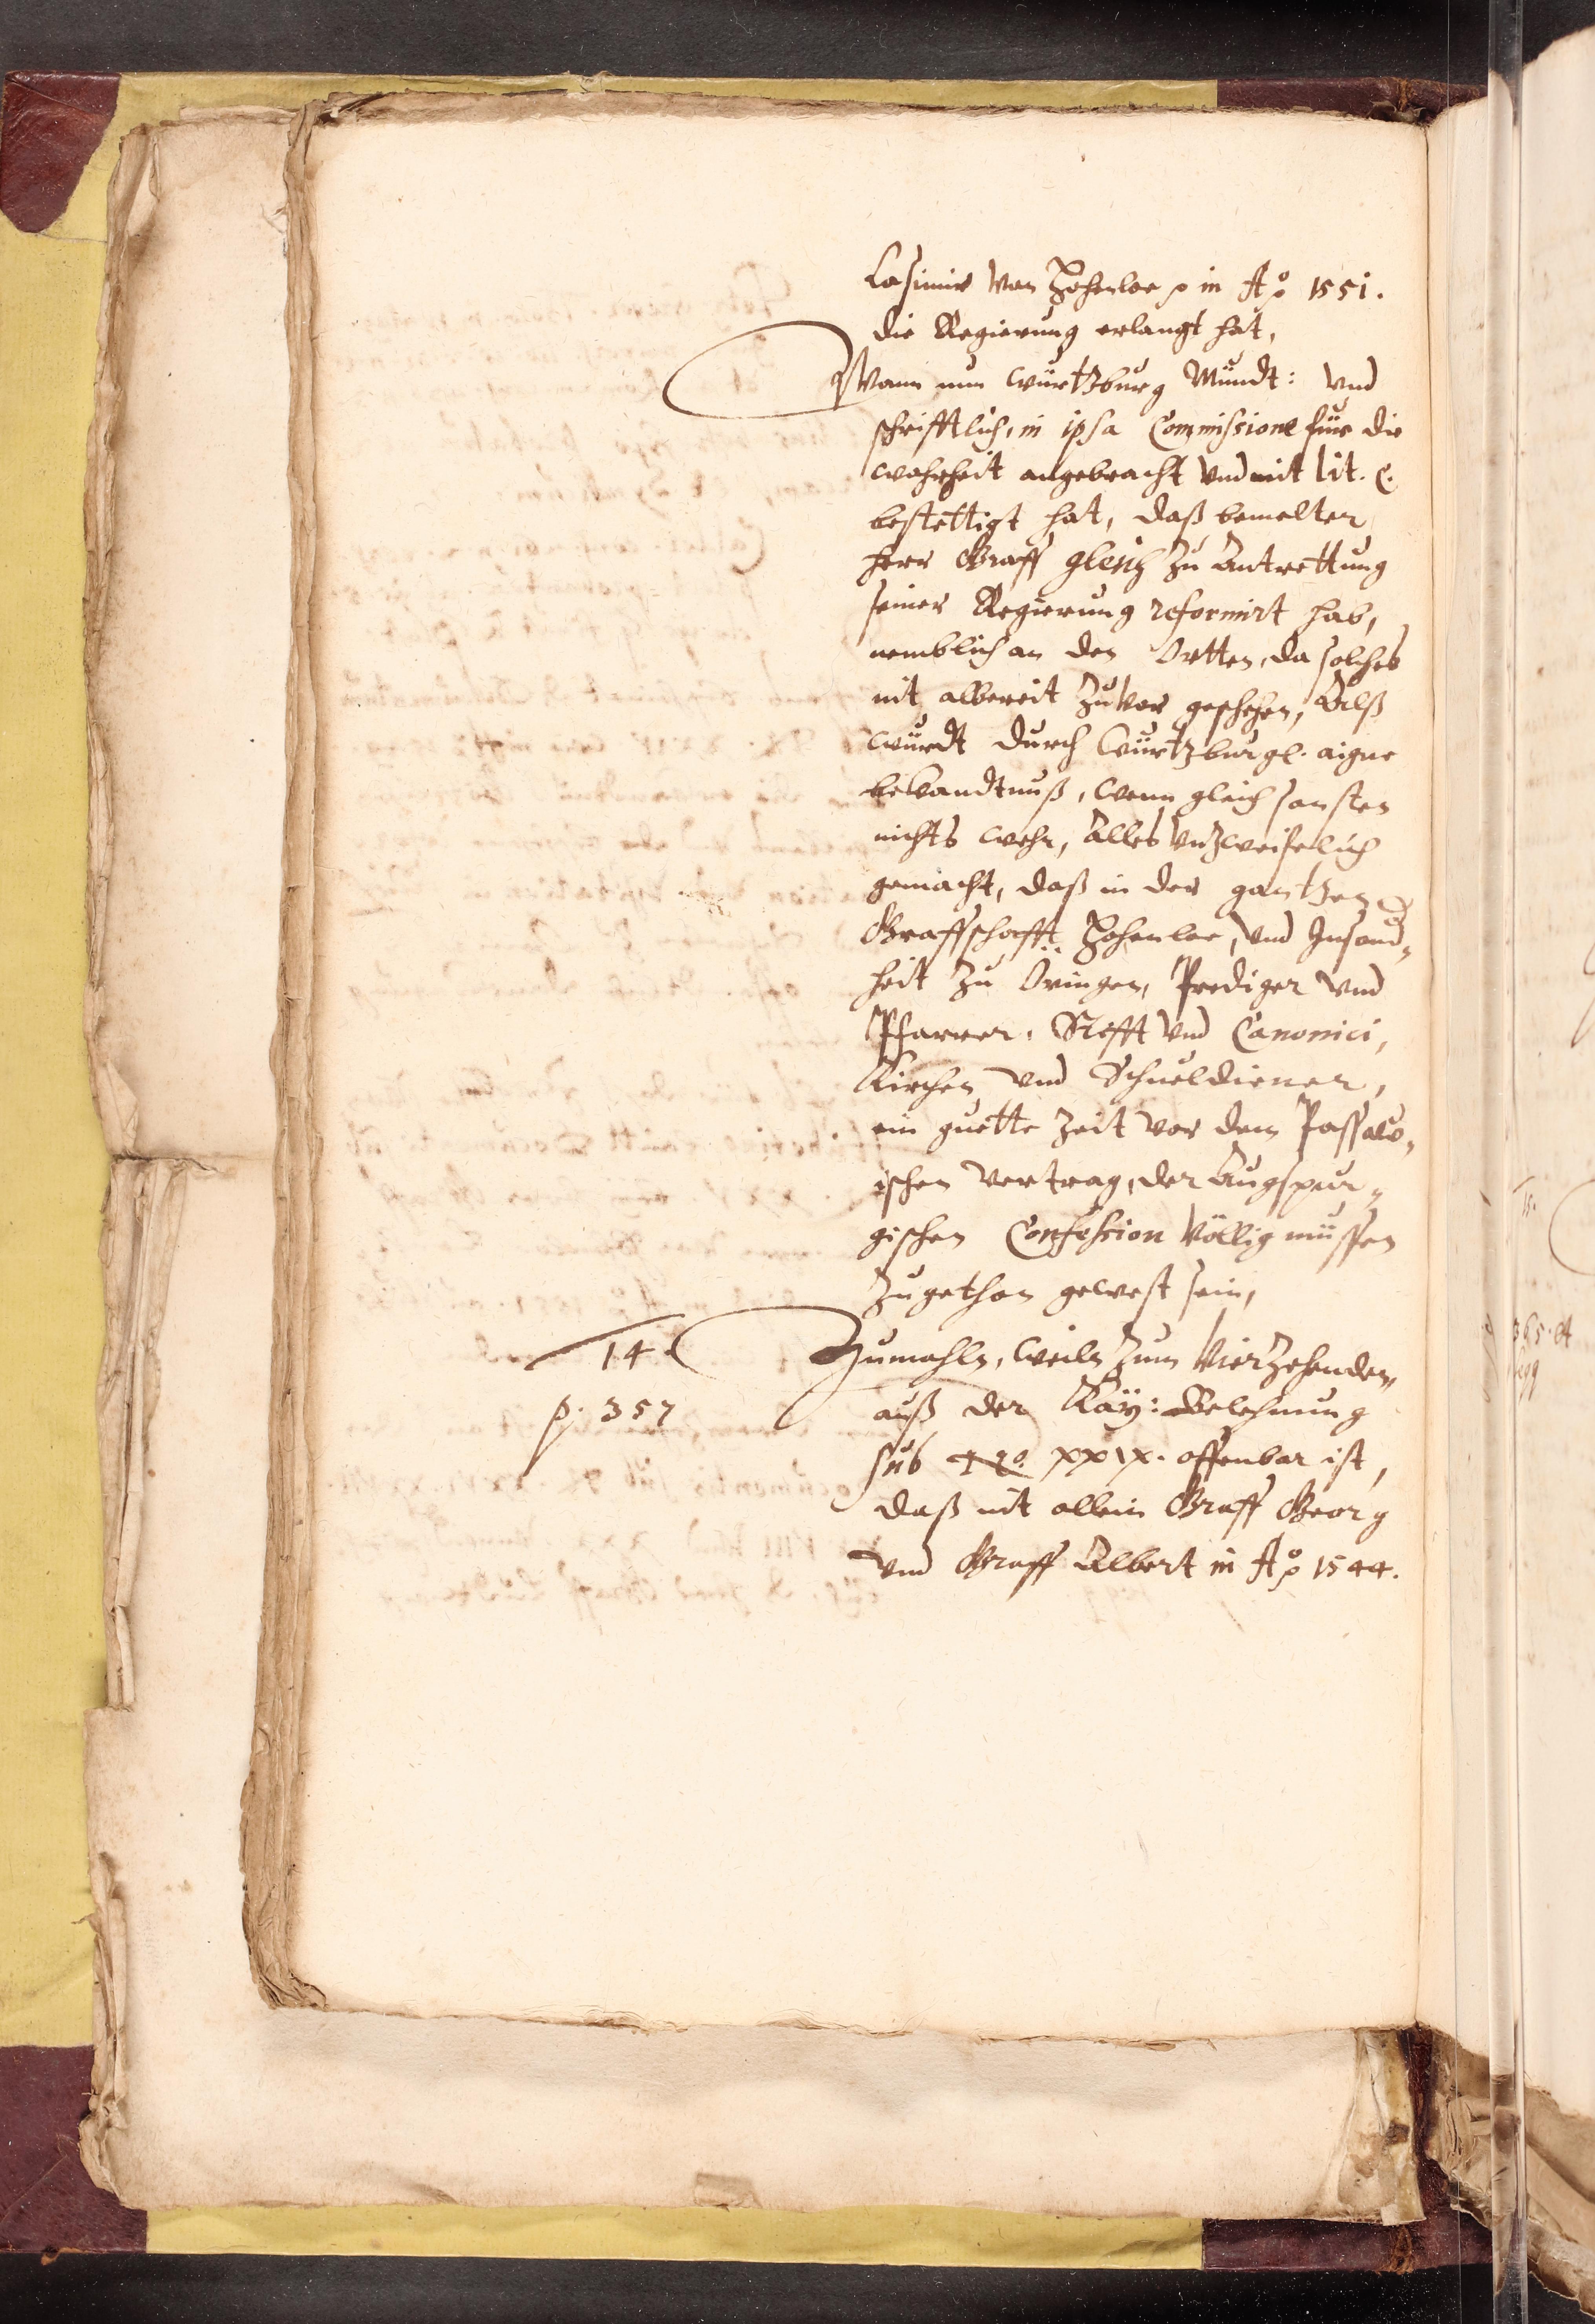 Casimir von Hohenloe p in Ao p 1551.
die Regierung erlangt hat,
Wann nun Würtzburg Mündt: vnd
schrifftlich, in ipsa Commissione für die
wahrheit angebracht vnd mit lit. C.
bestettigt hat, daß bemelter
Herr Graff gleich zu Antrettung
seiner Regierung reformirt hab,
nemblich an den Ortten, da solches
nit albereit zuvor geschehen, Alß
würdt durch Würtzburgl. aigne
bekandtnuß, wenn gleich sonsten
nichts wehr, alles vnzweifelich
gemacht, daß in der gantzen
Graffschafft Hohenloe, vnd Insond„
heit zu Öringen, Prediger vnd
Pfarrer, Stifft vnd Canonici,
Kirchen vnd Schueldiener,
ein guette Zeit vor dem Passaw„
ischen Vertrag, der Augspur„
gischen Confession völlig müssen
zugethan gewest sein,
14.
Zumahln, weiln zum Vierzehenden,
p. 357
auß der Kay: Belehnung
sub No. XXIX. offenbar ist,
daß nit allein Graff Georg
vnd Graff Albert in Ao p 1544.
15.
365. et
seqq